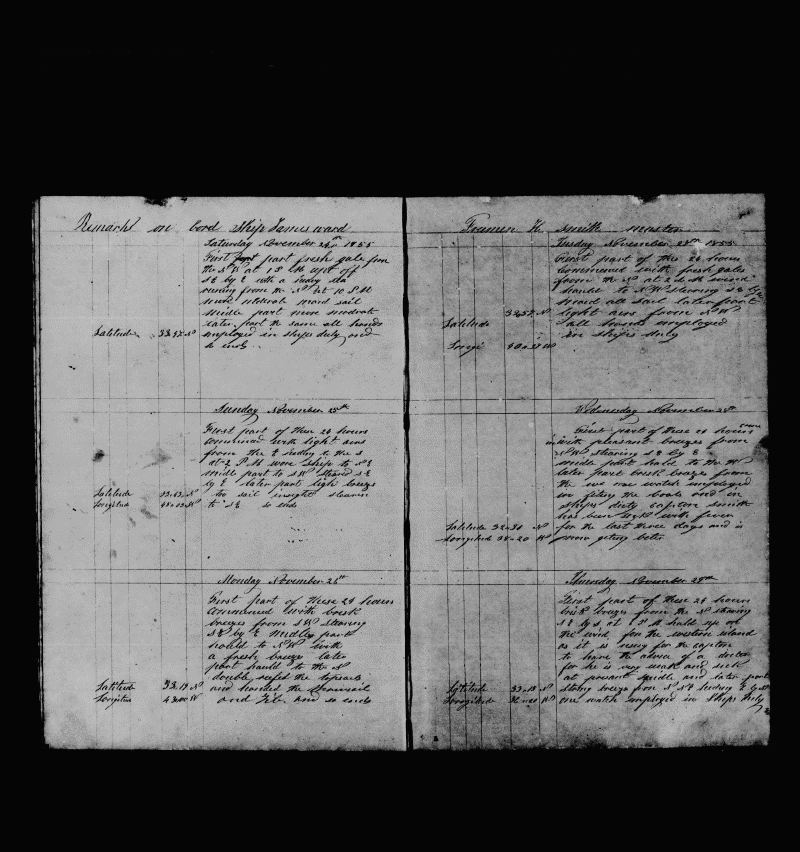 Remarks on bord Ship James ward
Saturday November 24th 1855
First part part fresh gale from
the N W at 1 P M kept off
S E by E with a heavy sea
runing from the N At 10 P M
more moderate maid sail
Middle part more moderate
later part the same all hands
Latitude 33.57 N employed in ships duty and
so ends
Sunday November 25th
First part of these 24 hours
commenced with light airs
from the E heading to the S
at 2 P M wore ship to N E
middle part to S W steard S E
by E later part ligh breeze
Latitude 33.53 N too sail insight stearin
Longitud W to S E so ends
Monday November 26th
First part of these 24 hours
commenced with brisk
breezes from S W stearing
S E by E Midley part
hauld to N W with
a fresh breeze later
part hauld to the N
double refed the topsails
Latitude 33.19 N and handed the mainsail
Longitud 43.00 W and Jib and so ends
Freamen H smith master
Tusday November 1855
First part of thes 24 hours
commenced with fresh gales
from the N at 2 A M wind
hauld to N W stearing S E by E
maid all sail later part
32.57 N light airs from N W
Latitude all hands employed
in ship's duty
Longi 40.27 W
Wednesday November 28th
First part of these 24 hours
with pleasant breezes from
N W stearing S E by E
middle part hald to the W
later part brisk breze from
the W one watch employed
in fiting the boats and in
ships duty captin smith
has been sick with fever
Latitude 32-30 N for the last three days and is
Longitud 38-20 W now geting beter
Thursday November
First part of these 24 hours
brisk breezes from the N stearing
S E by S at 1 P M hald up on
the wind for the western island
as it is nessy for the captin
to have the advice of a docter
for he is very weak and sick
at presant Middle and later part
Latitude 33-18 N strong breeze from N N E heading E by N
Longitud W one watch employed in ships duty